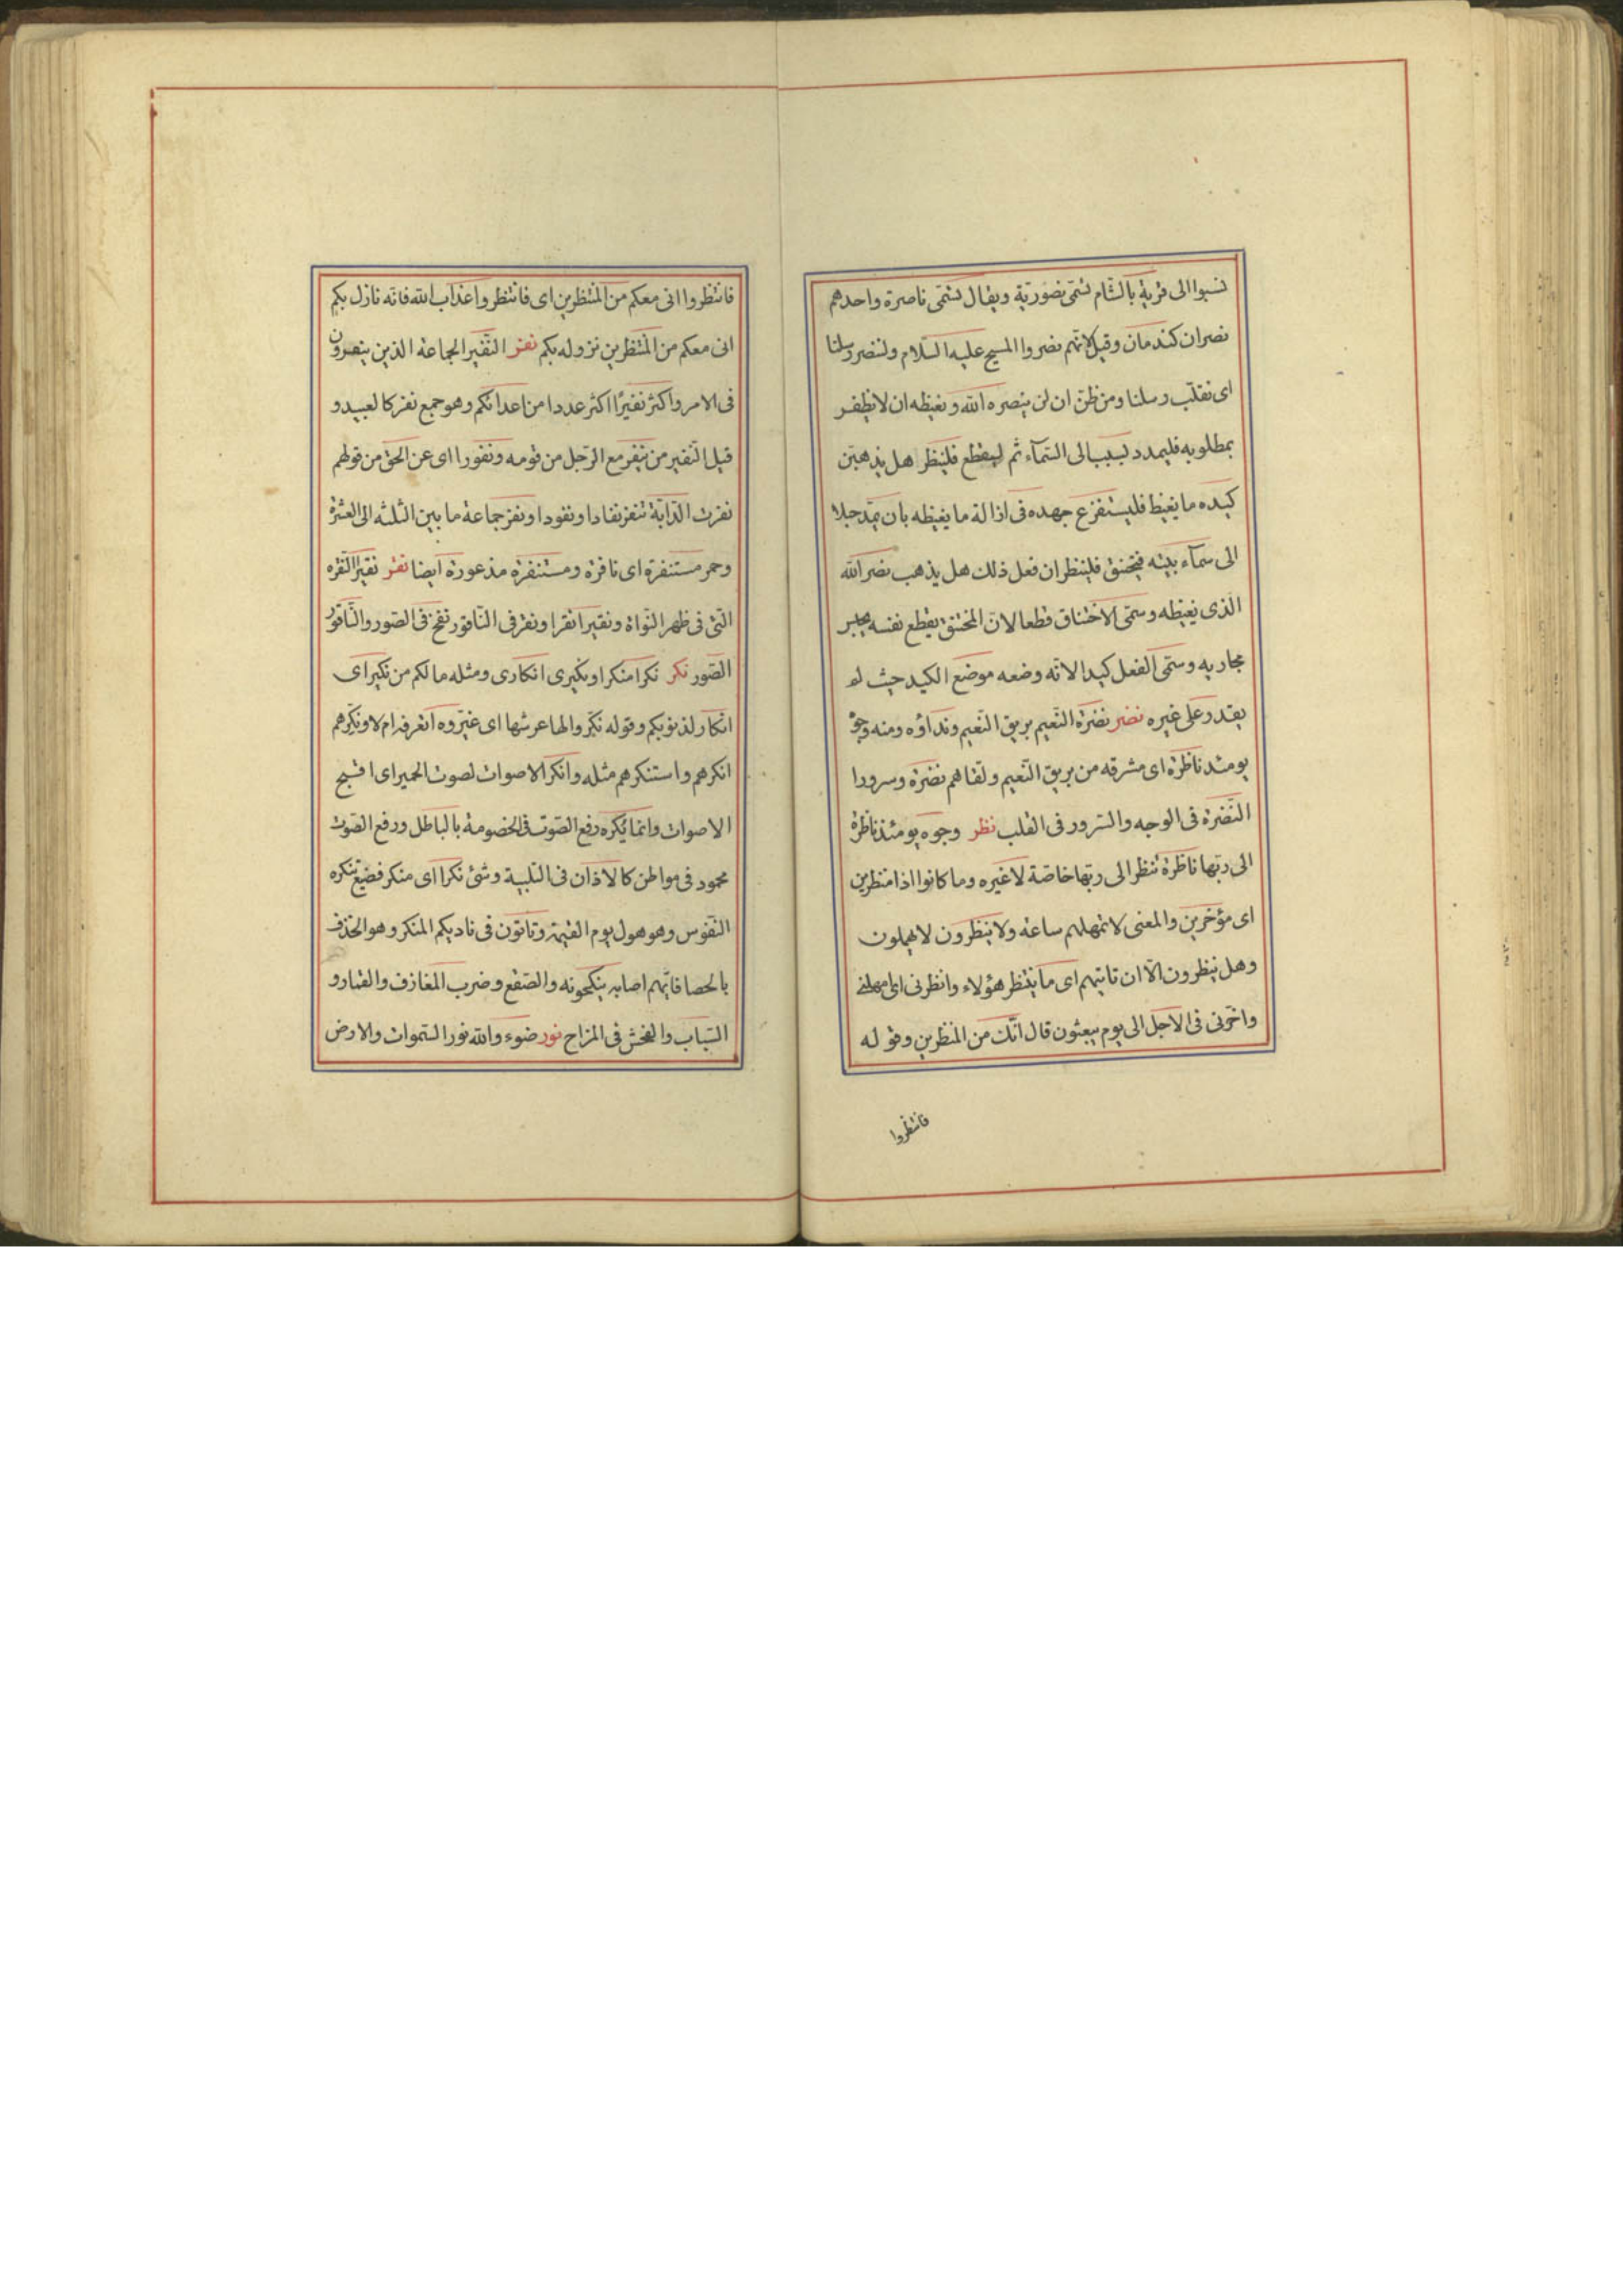 نسبوا الى قرية بالشام تسمى نصورية ويقال تسمى ناصرة واحدهم
نصران كندمان وقيل لانهم نصروا المسيح عليه السلام ولننصر رسلنا
اى نقلب رسلنا ومن ظن ان لن ينصره الله ويغيظه ان لا يظفر
بمطلوبه فليمدد بسبب الى السمآء ثم ليقطع فلينظر هل يذهبن
كيده ما يغيظ فليستفرع جهده فى ازالة ما يغيظه بان يمد حبلا
الى سمآء بيته فيختنق فلينظر ان فعل ذلك هل يذهب نصر الله
الذى يغيظه وسمى الاختناق قطعا لان المختنق يقطع نفسه بحبس
مجاريه وسمى الفعل كيدا لانه وضعه موضع الكيد حيث لم
يقدر على غيره نضر نضرة النعيم بريق النعيم ونداؤه ومنه وجوه
يومئذ ناظرة اى مشرقه من بريق النعيم ولقاهم نضرة وسرورا
النضرة فى الوجه والسرور فى القلب نظر وجوه يومئذ ناظرة
الى ربها ناظرة تنظر الى ربها خاصة لا غيره وما كانوا اذا منظرين
اى مؤخرين والمعنى لا تمهلهم ساعة ولا ينظرون لا يمهلون
وهل ينظرون الا ان تاتيهم اى ما ينتظر هؤلاء وانظرنى اى امهلنى
واخرنى فى الاجل الى يوم يبعثون قال انك من المنظرين وقوله
فانتظروا
فانتظروا انى معكم من المنتظرين اى فانتظروا عذاب الله فانه نازل بكم
انى معكم من المنتظرين نزوله بكم نفر النفير الجماعة الذين ينصرون
فى الامر واكثر نفيرًا اكثر عددا من اعدائكم وهو جمع نفر كالعبيد و
قيل النفير من ينفر مع الرجل من قومه ونفورا اى عن الحق من قولهم
نفرت الدابة تنفر نفارا ونفورا ونفر جماعة ما بين الثلثه الى العشرة
وحمر مستنفرة اى نافرة ومستنفرة مذعورة ايضا نقر نقيرًا النقره
التى فى ظهر النواة ونقيرا نقرا ونقر فى الناقور نفخ فى الصور والناقور
الصور نكر نكرا منكرا ونكيرى انكارى ومثله مالكم من نكير اى
انكار لذنوبكم وقوله نكروا لها عرشها اى غيروه اتعرفه ام لا ونكرهم
انكرهم واستنكرهم مثله وانكر الاصوات لصوت الحمير اى اقبح
الاصوات وانما يكره رفع الصوت فى الخصومة بالباطل ورفع الصوت
محمود فى مواطن كالاذان فى التلبية وشئ نكرا اى منكر فضيع تنكره
النفوس وهو هول يوم القيمة وتاتون فى ناديكم المنكر وهو الحذف
بالحصا فايهم اصابه ينكحونه والصقع وضرب المعازف والقمار و
السباب والفحش فى المزاح نور ضوء والله نور السموات والارض